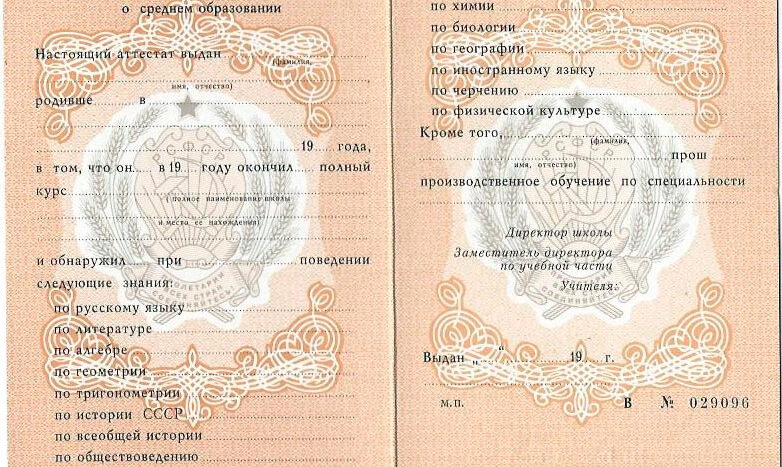 о среднем образовании
Настоящий аттестат выдан
(фамилия,
имя, отчество)
родивше в
19 года,
в том, что он в 19 году окончил полный
курс
(полное наименование школы
и место ее нахождения)
и обнаружил при поведении
следующие знания:
по русскому языку
по литературе
по алгебре
по геометрии
по тригонометрии
по истории СССР
по всеобщей истории
по обществоведению
РСФСР
ПРОЛЕТАРИИ
ВСЕХ СТРАН
СОЕДИНЯЙТЕСЬ
по химии
по биологии
по географии
по иностранному языку
по черчению
по физической культуре
Кроме того,
(фамилия,
прош
имя, отчество)
производственное обучение по специальности
РСФСР
ВСЕХ СТРАН
СОЕДИНЯЙТЕСЬ
Директор школы
Заместитель директора
по учебной части
Учителя:
Выдан „ “ 19 г.
м.п. В № 029096